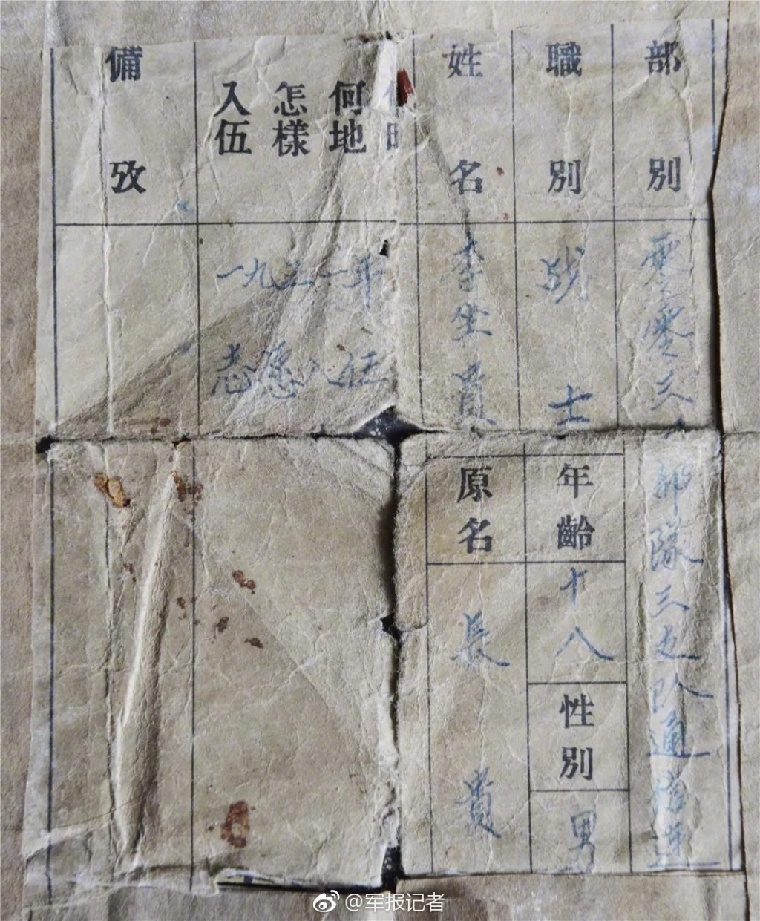 部別
零零三部隊三支队通信连
職別
战士
年齡
十八
性別
男
姓名
李生貴
原名
長貴
何地
怎樣
入伍
一九五一年
志愿入伍
備攷
@军报记者